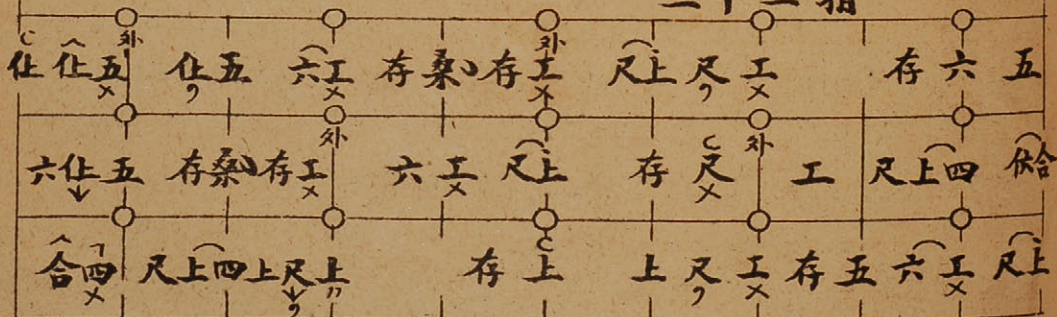 仩 仩 五 外 仩 五 六 工 存 桑 存 外 工 尺 上 尺 工 存 六 五
六 仩 五 存 桑 存 工 外 六 工 尺 上 存 尺 外 工 尺 上 四 合
合 四 尺 上 四 上 尺 上 存 上 上 尺 工 存 五 六 工 尺 上